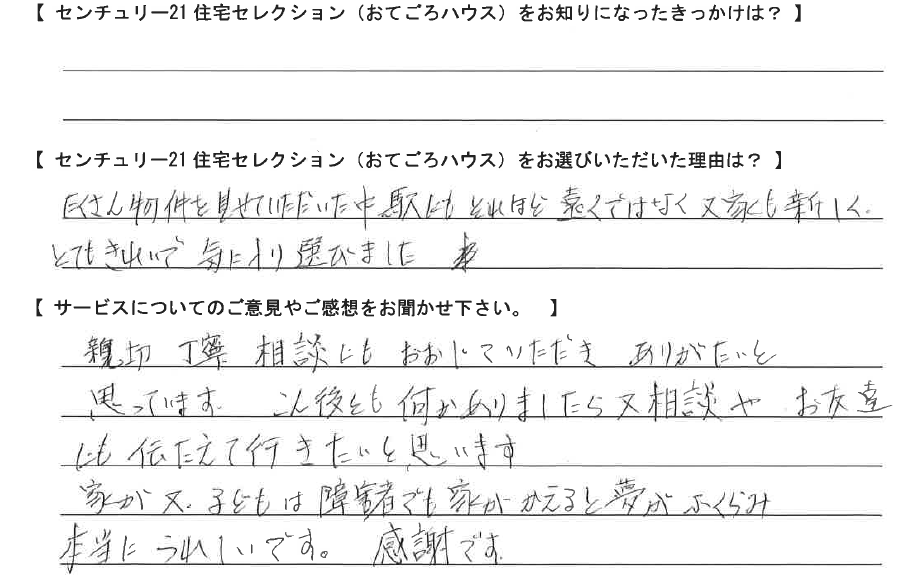 【 センチュリー21 住宅セレクション（おてごろハウス）をお知りになったきっかけは？ 】
【 センチュリー21 住宅セレクション（おてごろハウス）をお選びいただいた理由は？ 】
たくさん物件を見せていただいた中 駅にもそれほど遠くではなく 又家も新しく、
とてもきれいで 気に入り選びました
【 サービスについてのご意見やご感想をお聞かせ下さい。 】
親切 丁寧 相談にも おおじていただき ありがたいと
思ってます。 こん後とも何かありましたら又相談や お友達
にも伝たえて行きたいと思います
家が又、子どもは障害者でも家がかえると夢がふくらみ
本当にうれしいです。 感謝です